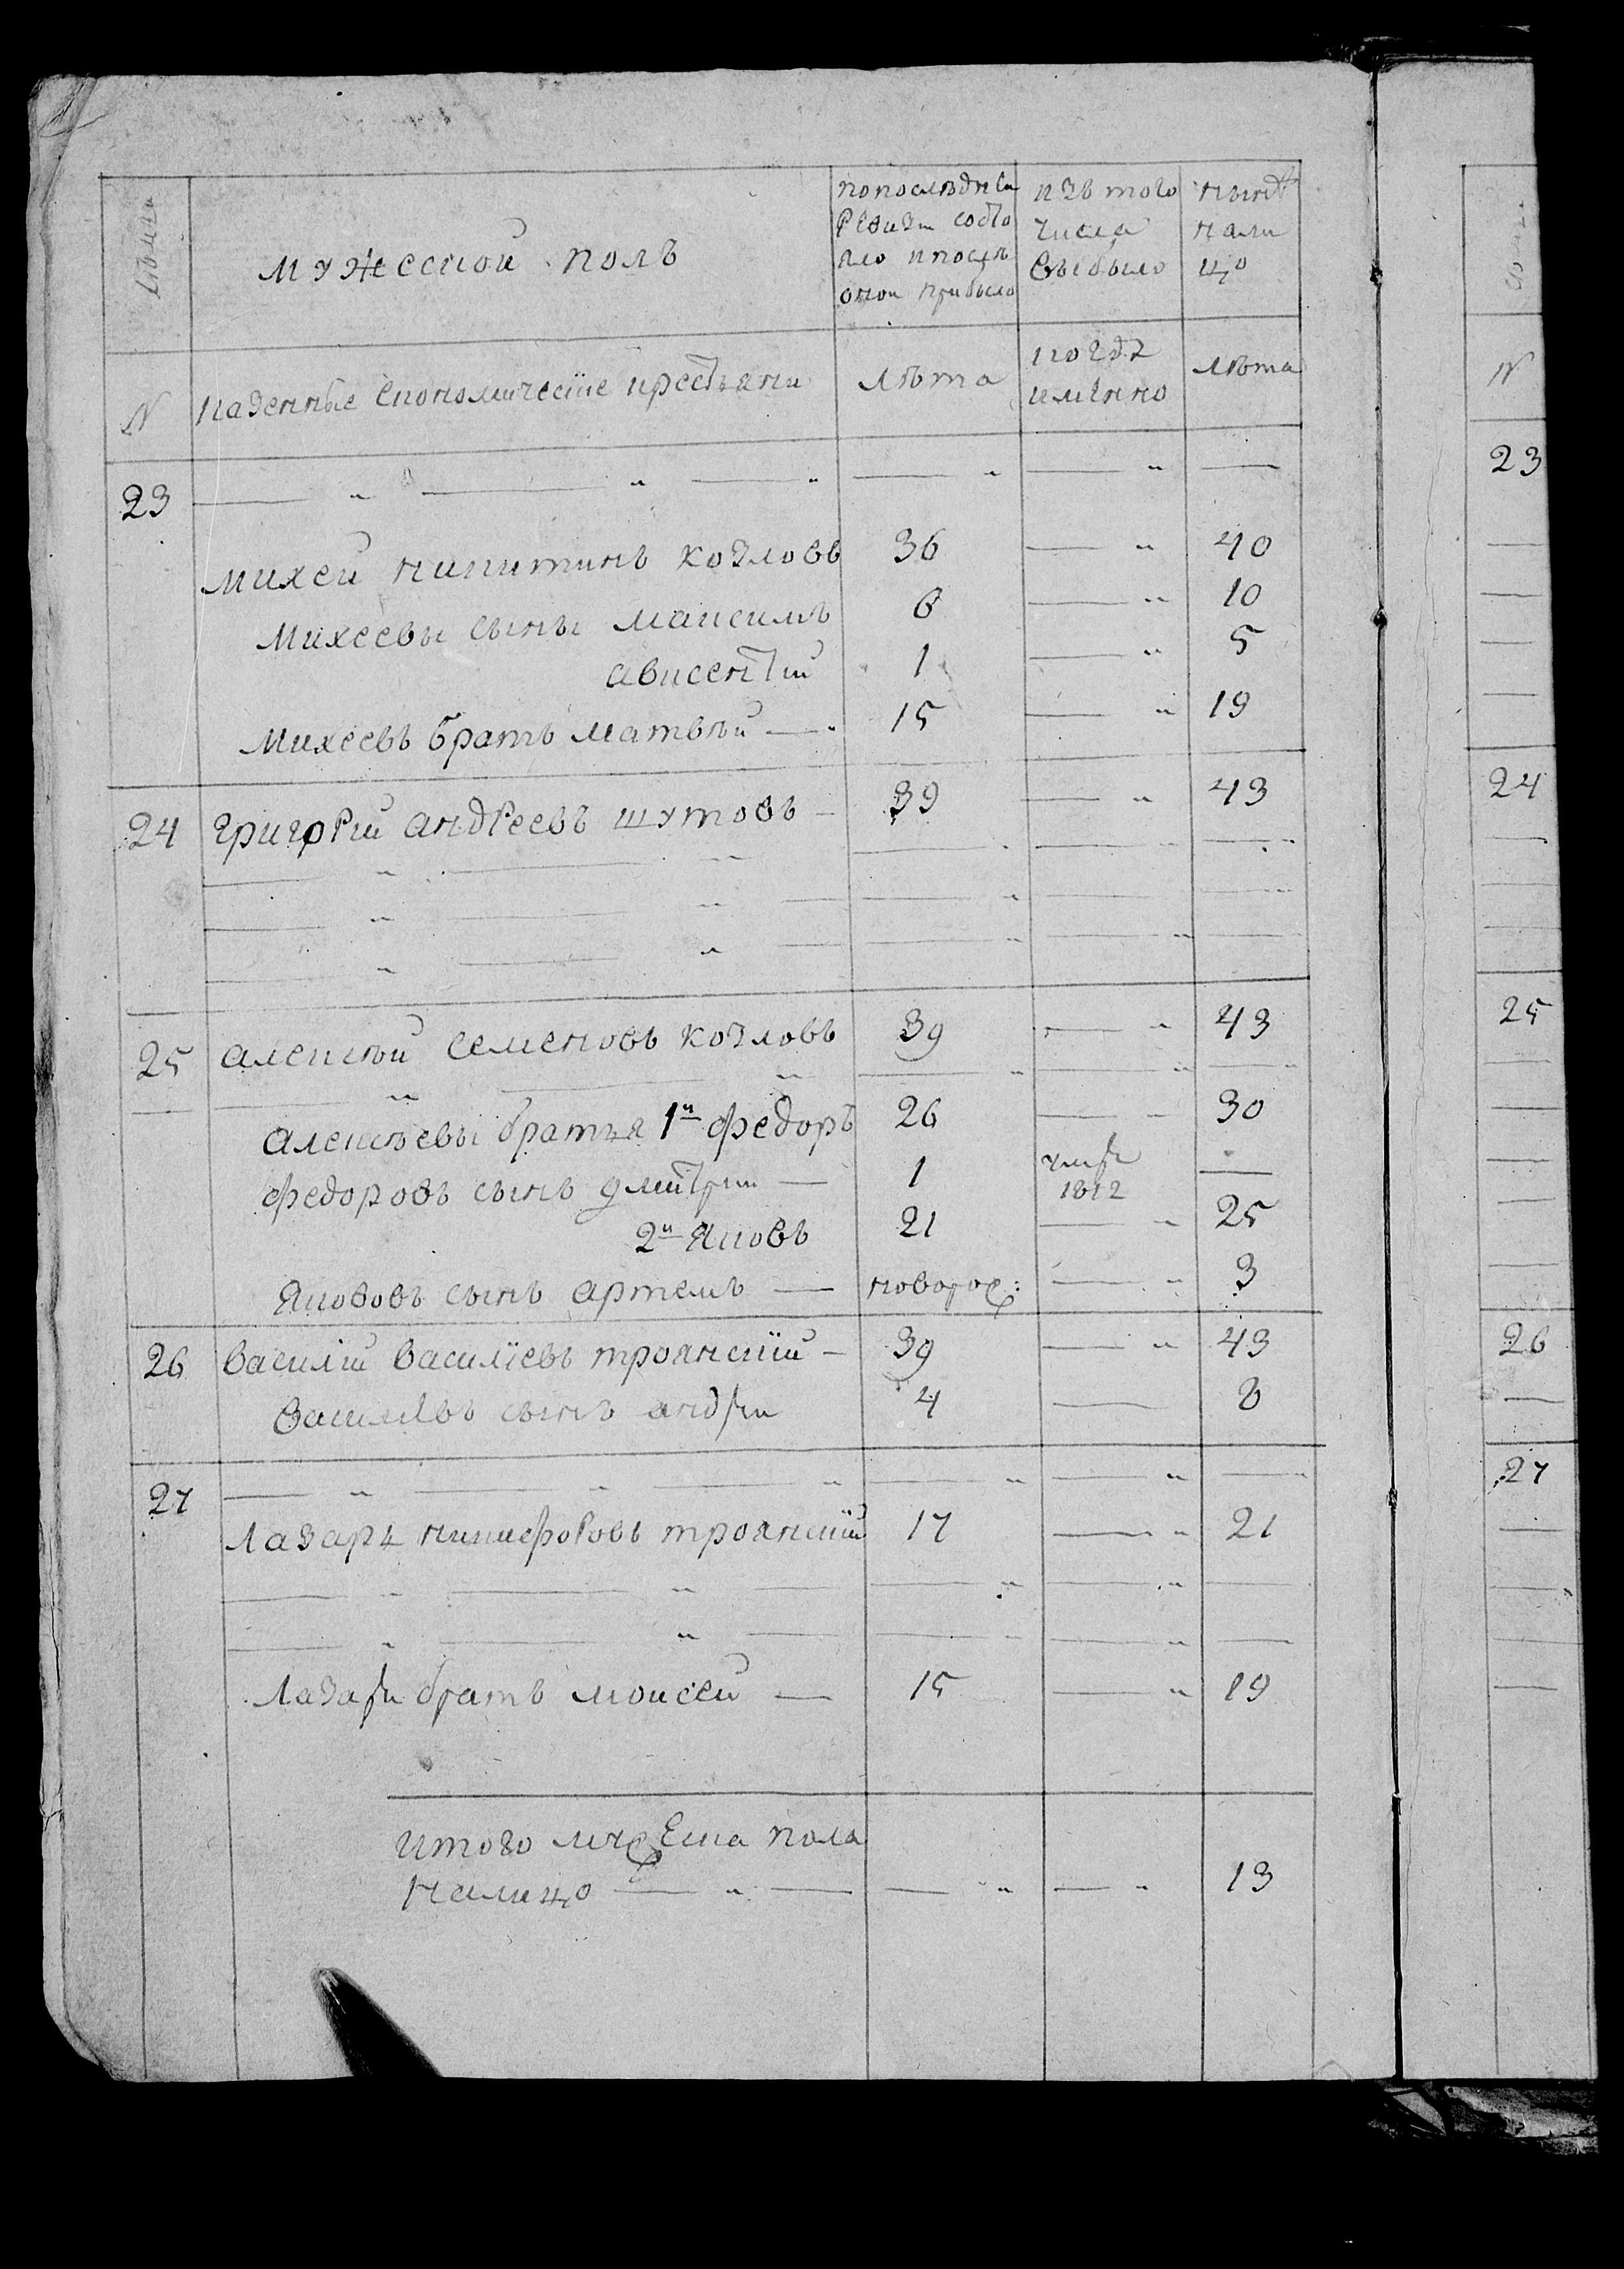 Фамили
мужеской полъ
попоследнеи
Ревизи состо
яло ипосле
онои прибыло
изъ того
числа
выбыло
ныне
нали
цо
N
казенные економическiе крестьяни
лѣта
когда
имянно
лѣта
N
23 — „ — „ — „ — „ — „ —
23
михеи никитинъ козловъ 36 — „ 40
михеевы сыны максимъ 6 — „ 10
авксентiй 1 — „ 5
михеевъ братъ матвѣй — „ 15 — „ 19
24 григорiй андреевъ шутовъ — 39 — „ 43
24
25 алексѣй семеновъ козловъ 39 — „ 43
25
алексѣевы братья 1й федоръ 26 — „ 30
федоровъ сынъ дмитрiи — 1 умре 1812 —
2й яковъ 21 — „ 25
якововъ сынъ артемъ — новорож: — „ 3
26 василiй василiевъ троянскiй — 39 — „ 43
26
василiевъ сынъ андреи 4 — 8
27 — „ — „ — „ — „ — „ —
27
лазарь никифоровъ троянскiй 17 — „ 21
лазаря братъ моисей — 15 — „ 19
итого мужеска пола
налицо — „ — — „ — „ 13